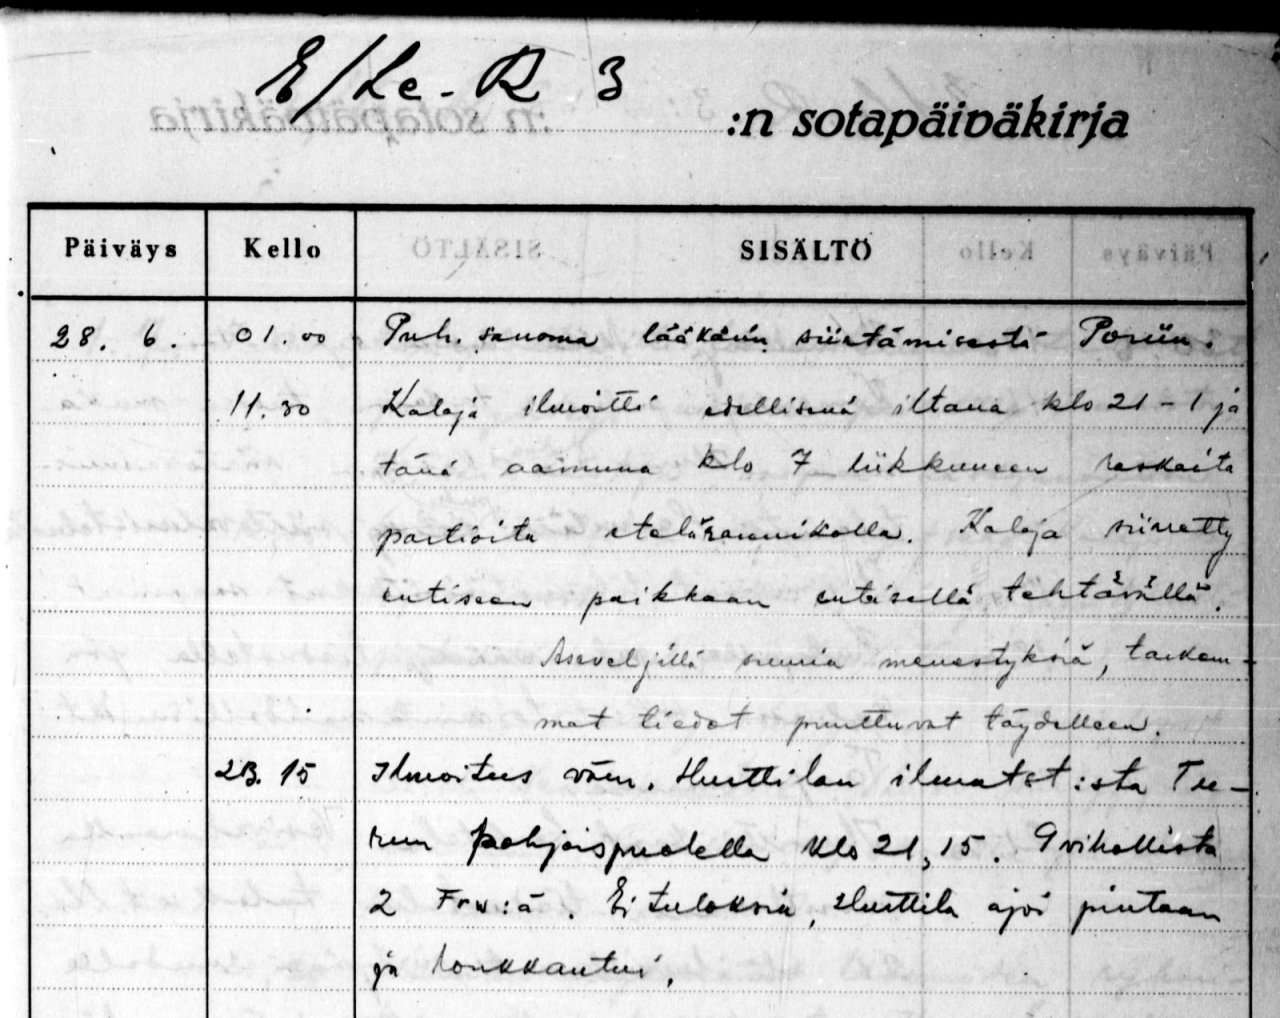 E/Le-R 3 :n sotapäiväkirja
Päiväys Kello SISÄLTÖ
28. 6. 01.00 Puh. sanoma lääkärin siirtämisestä Poriin.
11.30 Kaloja ilmoitti edellisenä iltana klo 21-1 ja
tänä aamuna klo 7 liikkuneen raskaita
partioita etelärannikolla. Kaloja siirretty
entiseen paikkaan entisellä tehtävällä.
Aseveljillä suuria menestyksiä, tarkem-
mat tiedot puuttuvat täydelleen.
23.15 Ilmoitus vänr. Hurttilan ilmatst:sta Tu-
run pohjoispuolella klo 21,15. 9 vihollista
2 Fr:ä. Ei tuloksia, Hurttila ajoi pintaan
ja loukkaantui.